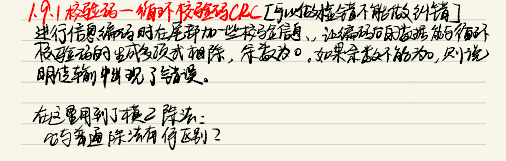 1.9.1 校验码—循环校验码CRC [可以做检错不能做纠错]
进行信息编码时在尾部加一些校验信息、让编码后的数据能与循环
校验码的生成多项式相除，余数为0。如果余数不能为0，则说
明传输中出现了错误。
在这里用到了模2除法：
它与普通除法有何区别？